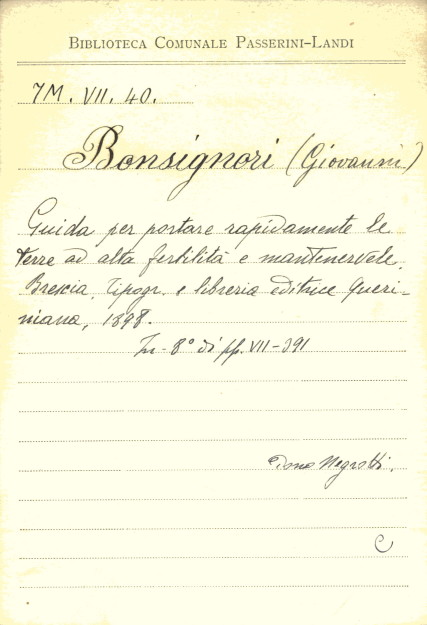 BIBLIOTECA COMUNALE PASSERINI-LANDI
7M. VII. 40.
Bonsignori (Giovanni)
Guida per portare rapidamente le
terre ad alta fertilità e mantenervele.
Brescia, Tipogr. e libreria editrice Queri-
niana, 1898.
In-8° di pp. VII-391
Dono Negrotti.
C